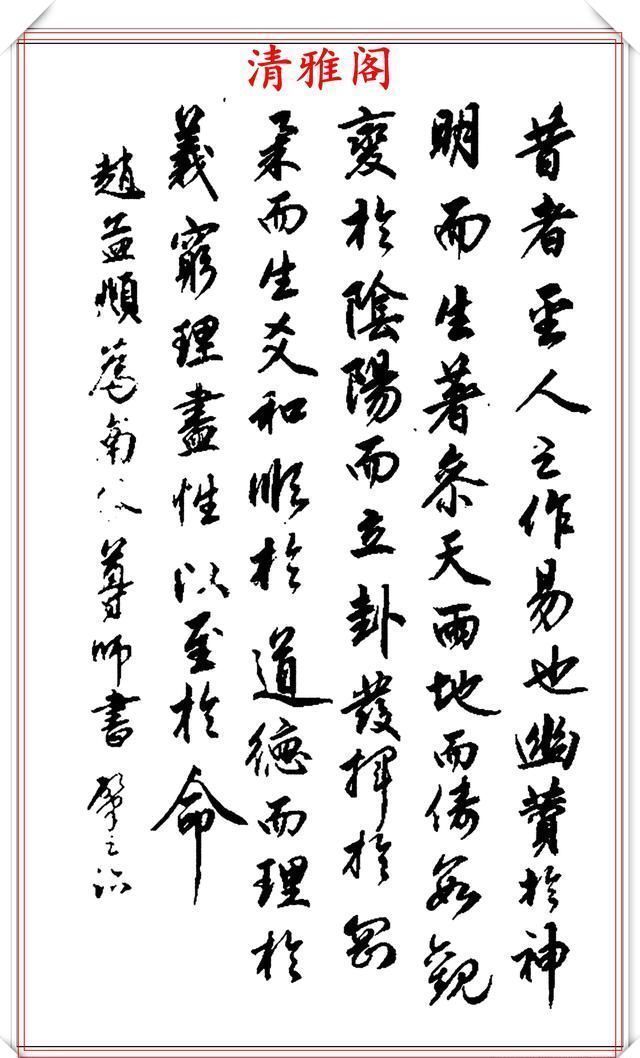 清雅阁
昔者聖人之作易也幽贊於神
明而生蓍參天兩地而倚數觀
變於陰陽而立卦發揮於剛
柔而生爻和順於道德而理於
義窮理盡性以至於命
趙益順篤尊師書